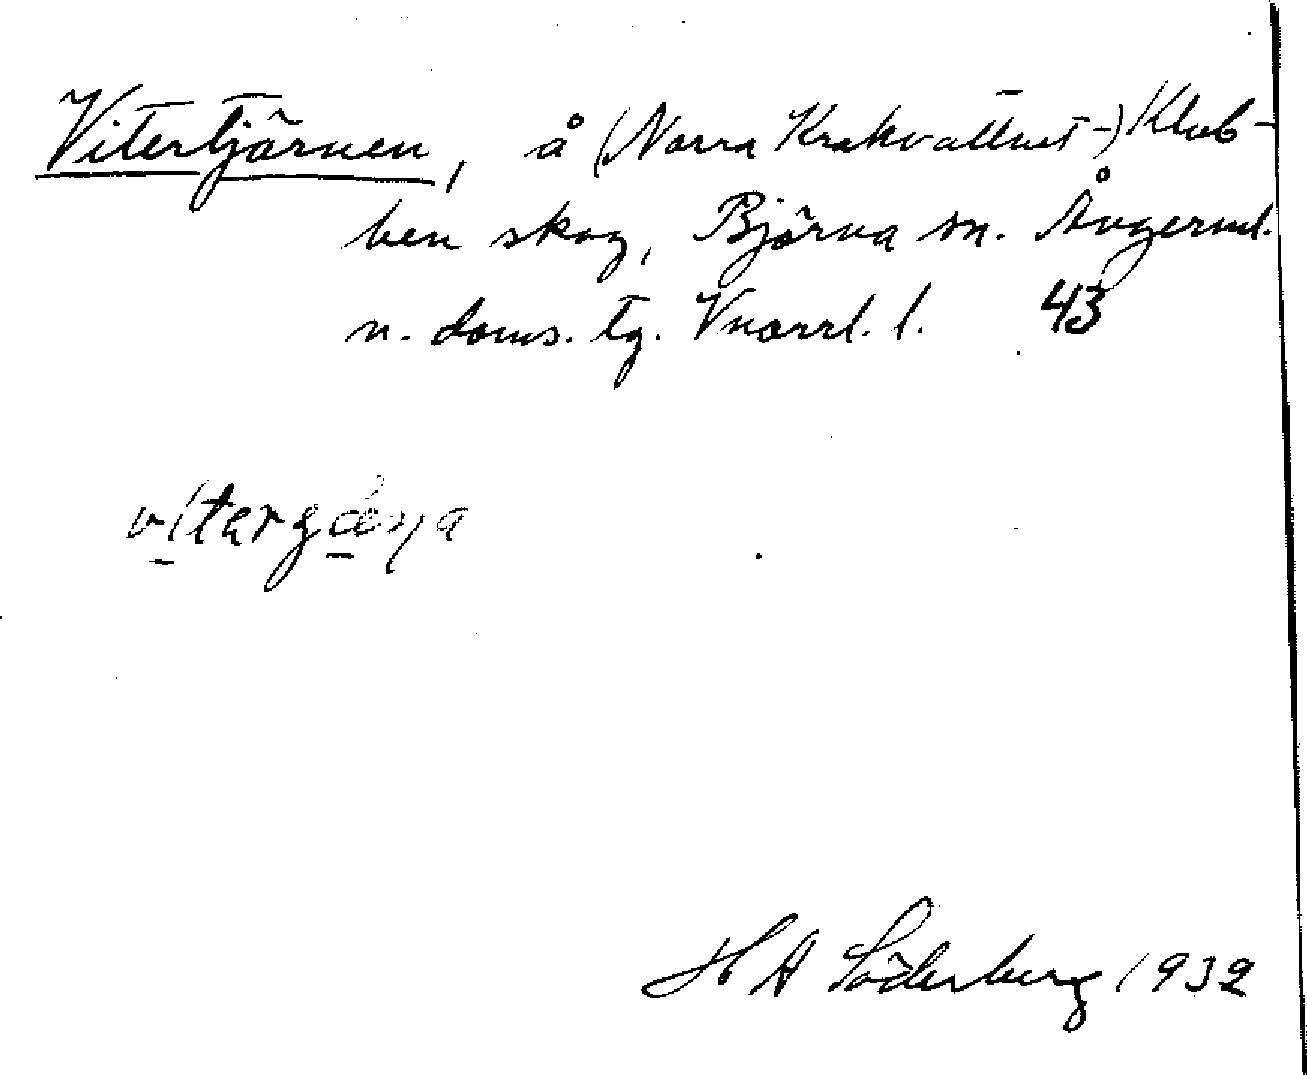 Vitertjärnen, å (Norra Krakvattnet-) Klub-
ben skog, Björna sn. Ångerml.
n. doms. tg. Vnorrl. l. 43
H A Söderberg 1932